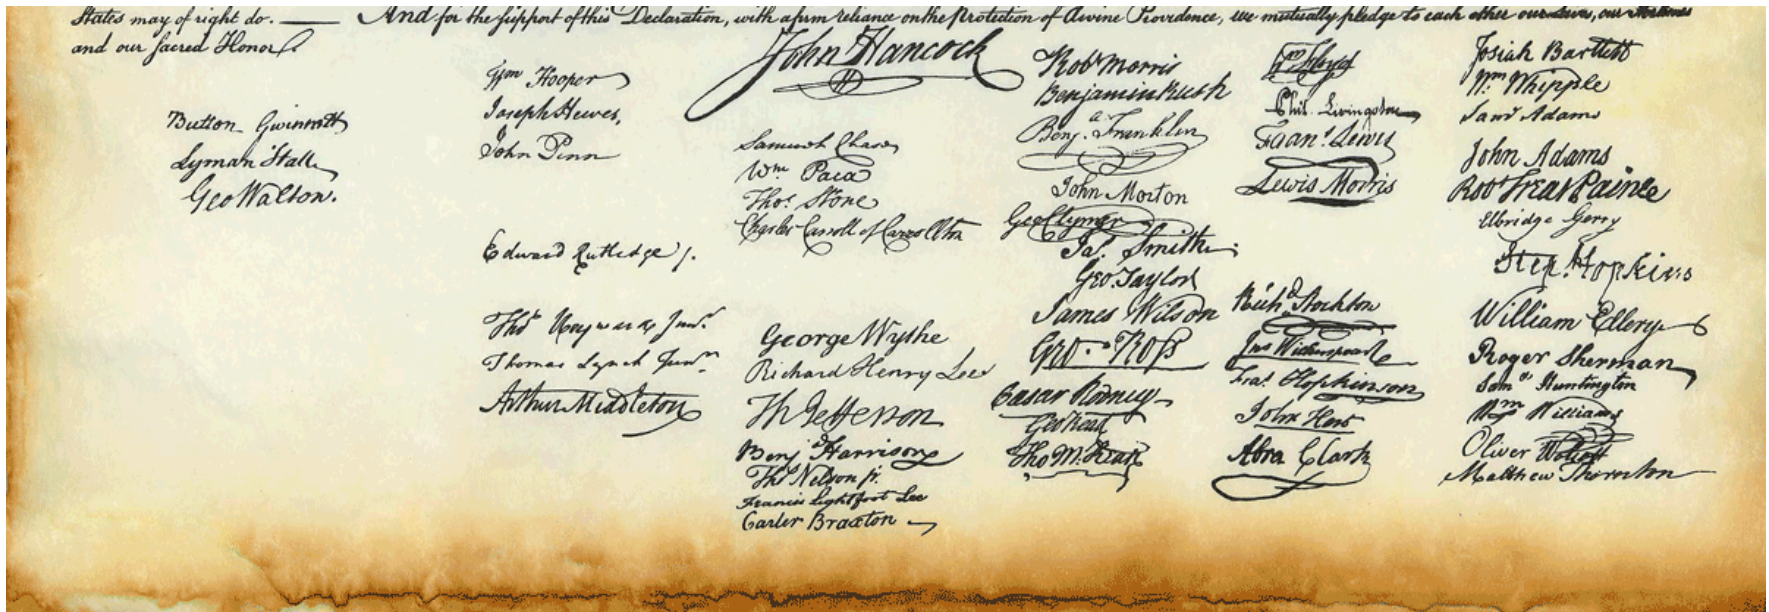 States may of right do. — And for the support of this Declaration, with a firm reliance on the Protection of divine Providence, we mutually pledge to each other our Lives, our Fortunes
and our sacred Honor
Button Gwinnett
Lyman Hall
Geo Walton.
Wm Hooper
Joseph Hewes,
John Penn
Edward Rutledge /.
Thos Heyward Junr.
Thomas Lynch Junr.
Arthur Middleton
John Hancock
Samuel Chase
Wm Paca
Thos. Stone
Charles Carroll of Carrollton
George Wythe
Richard Henry Lee
Th Jefferson
Benj Harrison
Thos Nelson jr.
Francis Lightfoot Lee
Carter Braxton
Robt Morris
Benjamin Rush
Benja. Franklin
John Morton
Geo Clymer
Jas. Smith
Geo. Taylor
James Wilson
Geo. Ross
Caesar Rodney
Geo Read
Tho M:Kean
Wm Floyd
Phil. Livingston
Frans. Lewis
Lewis Morris
Richd. Stockton
Jno Witherspoon
Fras. Hopkinson
John Hart
Abra Clark
Josiah Bartlett
Wm. Whipple
Saml Adams
John Adams
Robt Treat Paine
Elbridge Gerry
Step. Hopkins
William Ellery
Roger Sherman
Saml. Huntington
Wm Williams
Oliver Wolcott
Matthew Thornton